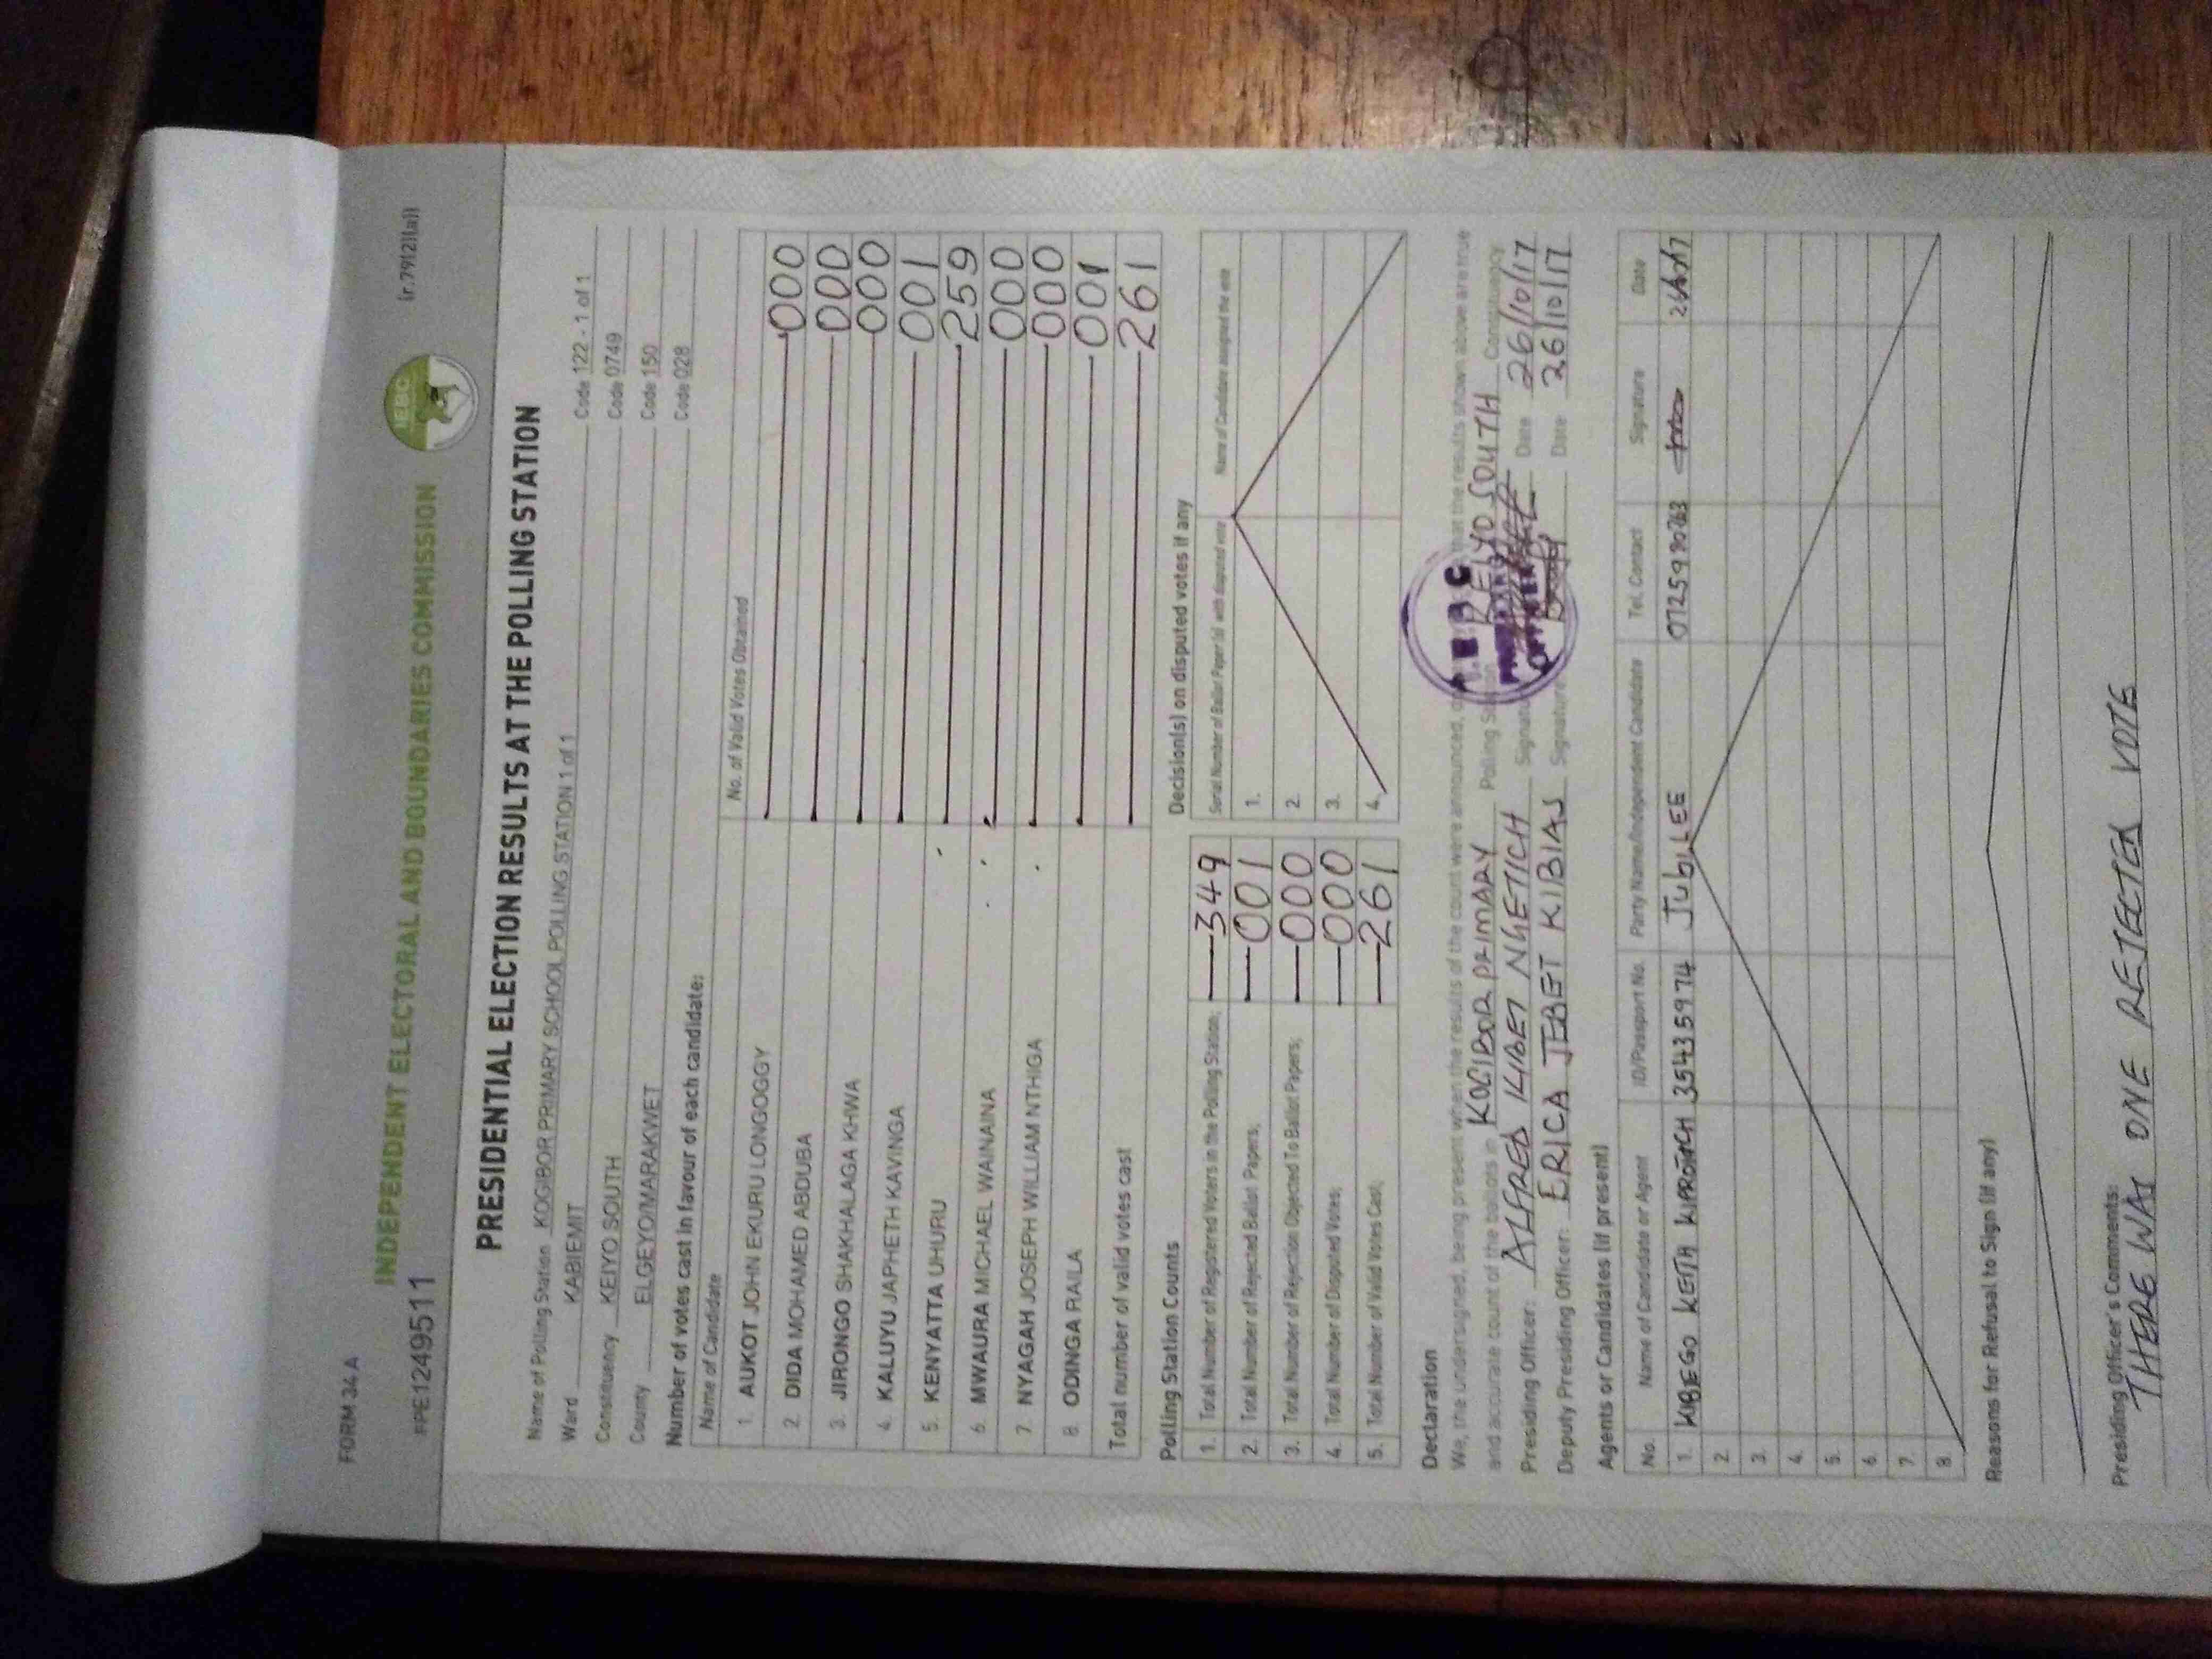 FORM 34A (r.79(2)(a))
INDEPENDENT ELECTORAL AND BOUNDARIES COMMISSION
IEBC
#PE1249511
PRESIDENTIAL ELECTION RESULTS AT THE POLLING STATION
Name of Polling Station KOGIBOR PRIMARY SCHOOL POLLING STATION 1 of 1 Code 122 - 1 of 1
Ward KABIEMIT Code 0749
Constituency KEIYO SOUTH Code 150
County ELGEYO/MARAKWET Code 028
Number of votes cast in favour of each candidate:
Name of Candidate No. of Valid Votes Obtained
1. AUKOT JOHN EKURU LONGOGGY 000
2. DIDA MOHAMED ABDUBA 000
3. JIRONGO SHAKHALAGA KHWA 000
4. KALUYU JAPHETH KAVINGA 001
5. KENYATTA UHURU 259
6. MWAURA MICHAEL WAINAINA 000
7. NYAGAH JOSEPH WILLIAM NTHIGA 000
8. ODINGA RAILA 001
Total number of valid votes cast 261
Polling Station Counts
1. Total Number of Registered Voters in the Polling Station; 349
2. Total Number of Rejected Ballot Papers; 001
3. Total Number of Rejection Objected To Ballot Papers; 000
4. Total Number of Disputed Votes; 000
5. Total Number of Valid Votes Cast; 261
Decision(s) on disputed votes if any
Serial Number of Ballot Paper(s) with disputed vote Name of Candidate assigned the vote
1.
2.
3.
4.
Declaration
We, the undersigned, being present when the results of the count were announced, that the results shown above are true
and accurate count of the ballots in KOGIBOR PRIMARY Polling KEIYO SOUTH Constituency
Presiding Officer: ALFRED KIBET NGETICH Signature Date 26/10/17
Deputy Presiding Officer: ERICA JEBET KIBIAS Signature Date 26/10/17
I.E.B.C
PRESIDING
OFFICER
Agents or Candidates (if present)
No. Name of Candidate or Agent ID/Passport No. Party Name/Independent Candidate Tel. Contact Signature Date
1. KIBEGO KEITH KIPROTICH 3543 JUBILEE
2.
3.
4.
5.
6.
7.
8.
Reasons for Refusal to Sign (if any)
Presiding Officer's Comments:
THERE WAS ONE REJECTED VOTE